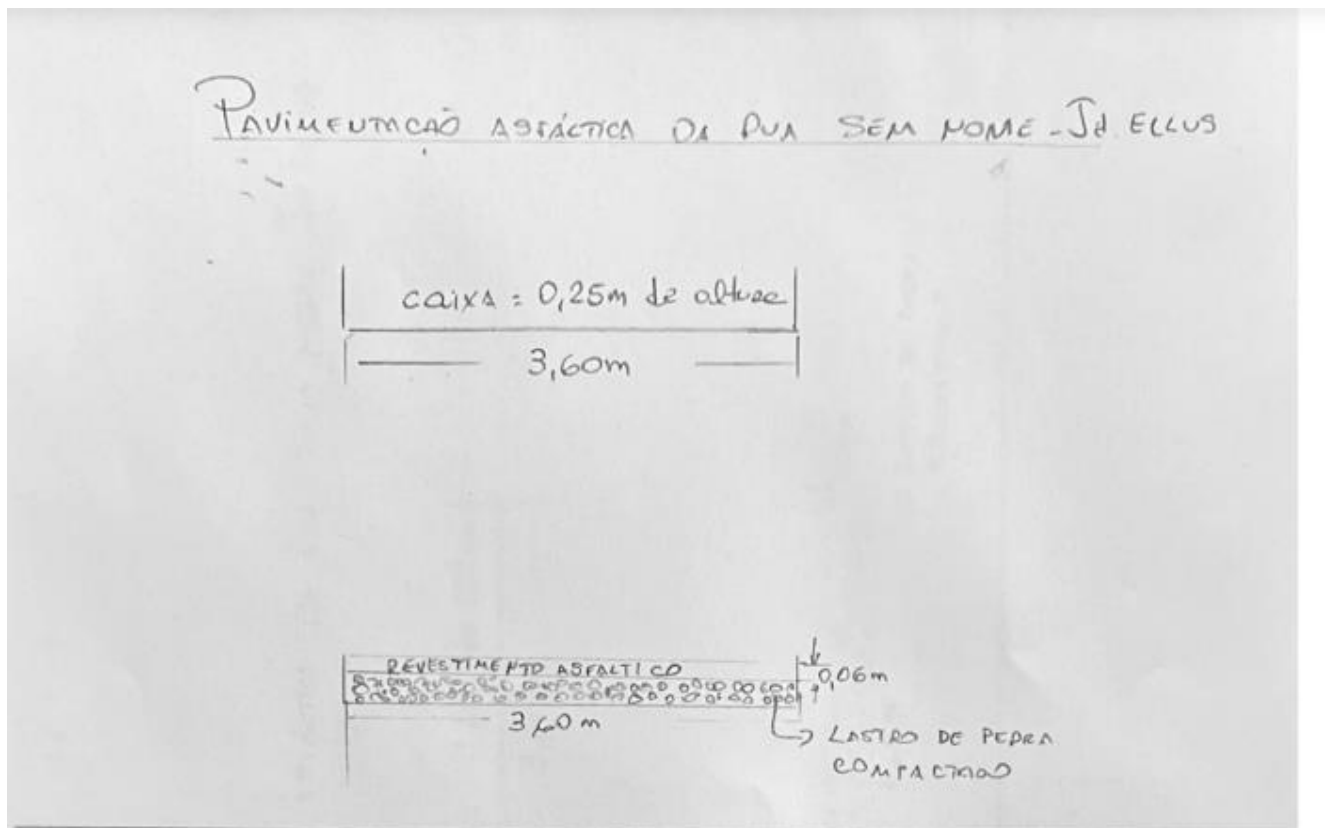 PAVIMENTACAÕ ASFÁCTICA DA RUA SEM NOME - Jd ELLUS
caixa = 0,25m de altura
3,60m
REVESTIMENTO ASFALTICO
0,06m
3,60 m
LASTRO DE PEDRA
COMPACTADO